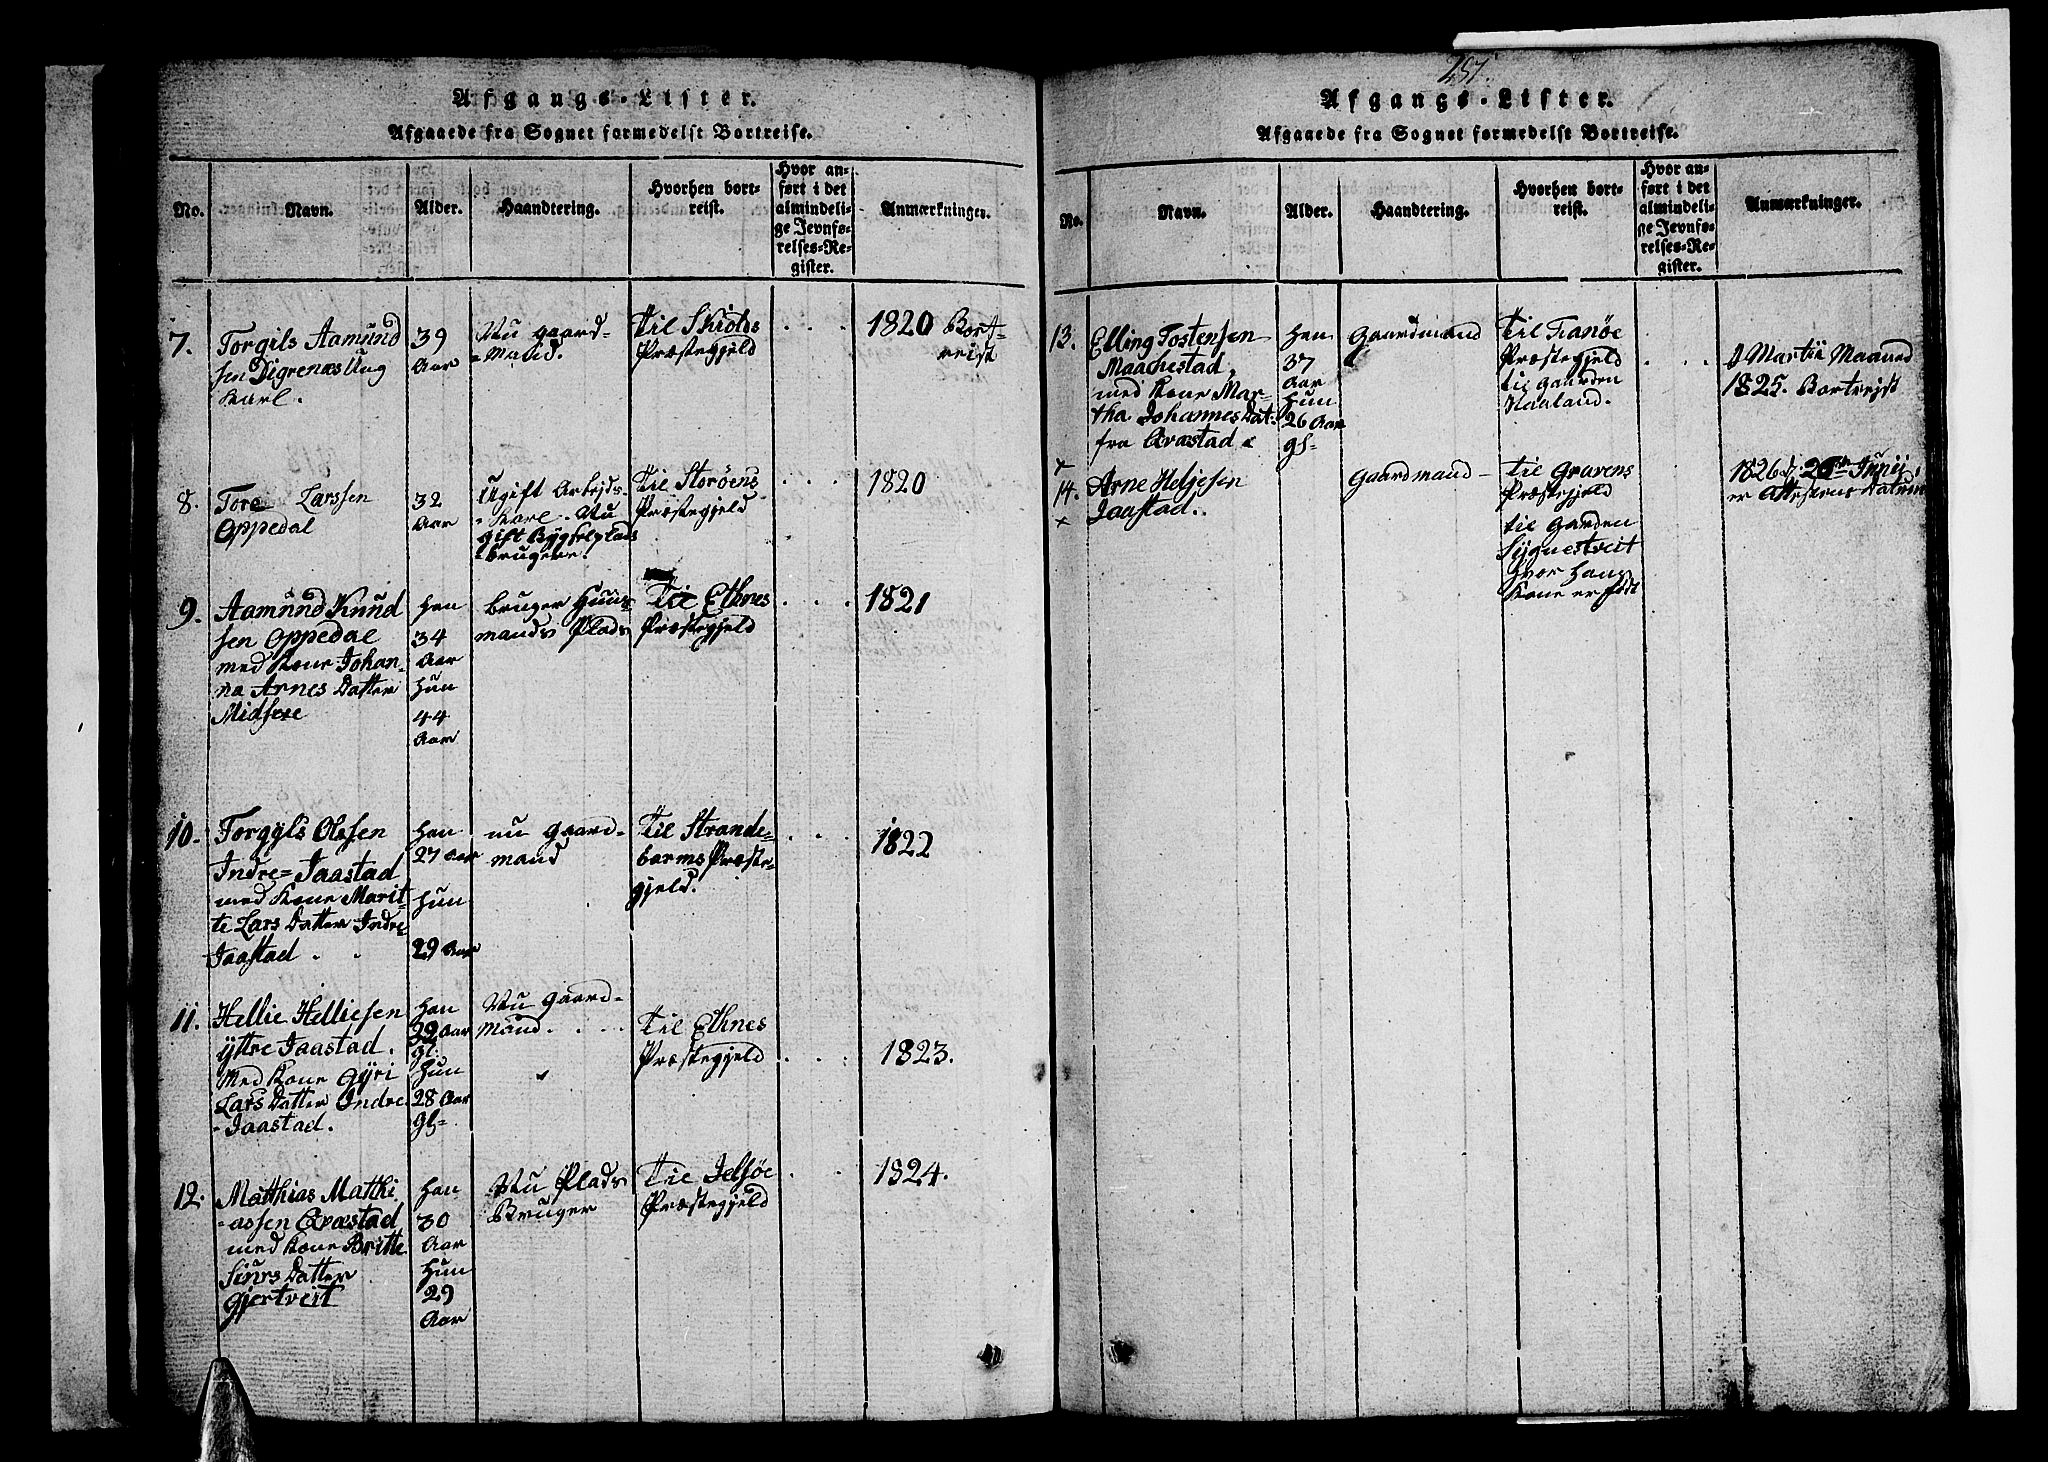 Afgangs-Lister.
Afgaaede fra Sognet formedelst Bortreise.
No.
Navn.
Alder.
Haandtering.
Hvorhen bort-
reist.
Hvor an-
ført i det
almindeli-
ge Jevnfø-
relses-Re-
gister.
Anmærkninger.
7.
Torgils Aamund
sen Digrenæs Ung
Karl.
39
Aar
Nu gaard-
-Mand.
Til Skiolds
Præstegjeld
1820 Bort-
reist
8.
Tore Larssen
Oppedal
32
Aar
Ugift Arbejds-
-Karl. Nu
gift Bygselplads
bruger.
Til Storøens
Præstegjeld
1820
9.
Aamund Knud
sen Oppedal
med Kone Johan-
na Arnes Datter
Midsere
Han
34
Aar
Hun
44
Aar
bruger Huus-
mands Plads
Til Ethnes
Præstegjeld
1821
10.
Torgyls Olssen
Indre=Jaastad
med Kone Marit-
te Lars Datter Indre
Jaastad
Han
27 Aar
Hun
29 Aar
nu gaard-
mand
Til Strande-
barms Præste-
gjeld.
1822
11.
Hellie Helliesen
Yttre Jaastad.
Med Kone Gyri
Lars Datter Indre
-Jaastad.
Han
29 Aar
gl:
Hun
28 Aar
gl-
Nu gaard-
Mand.
Til Ethnes
Præstegjeld
1823.
12.
Matthias Matthi
-assen Qvæstad
med Kone Britte
Siurs Datter
Gjertveit
Han
30
Aar
Hun
29
Aar
Nu Plads
Bruger
Til Jelsøe
Præstegjeld
1824.
257.
Afgangs-Lister.
Afgaaede fra Sognet formedelst Bortreise.
No.
Navn.
Alder.
Haandtering.
Hvorhen bort-
reist.
Hvor an-
ført i det
almindeli-
ge Jevnfø-
relses-Re-
gister.
Anmærkninger.
13.
Elling Tostensen
Maachestad,
med Kone Mar-
tha Johannes Dat:
fra Qvæstad
Han
37
Aar
Hun
26 Aar
gl-
Gaardmand
Til Fianøe
Præstegjeld
til Gaarden
Haaland.
I Martii Maaned
1825. Bortrejst
14.
Arne Heljesen
Jaastad.
Gaardmand
Til Gravens
Præstegjeld
til Gaarden
Sygnestveit
hvor hans
Kone er født
1826 d: 26de Junij
er Attestens Datum